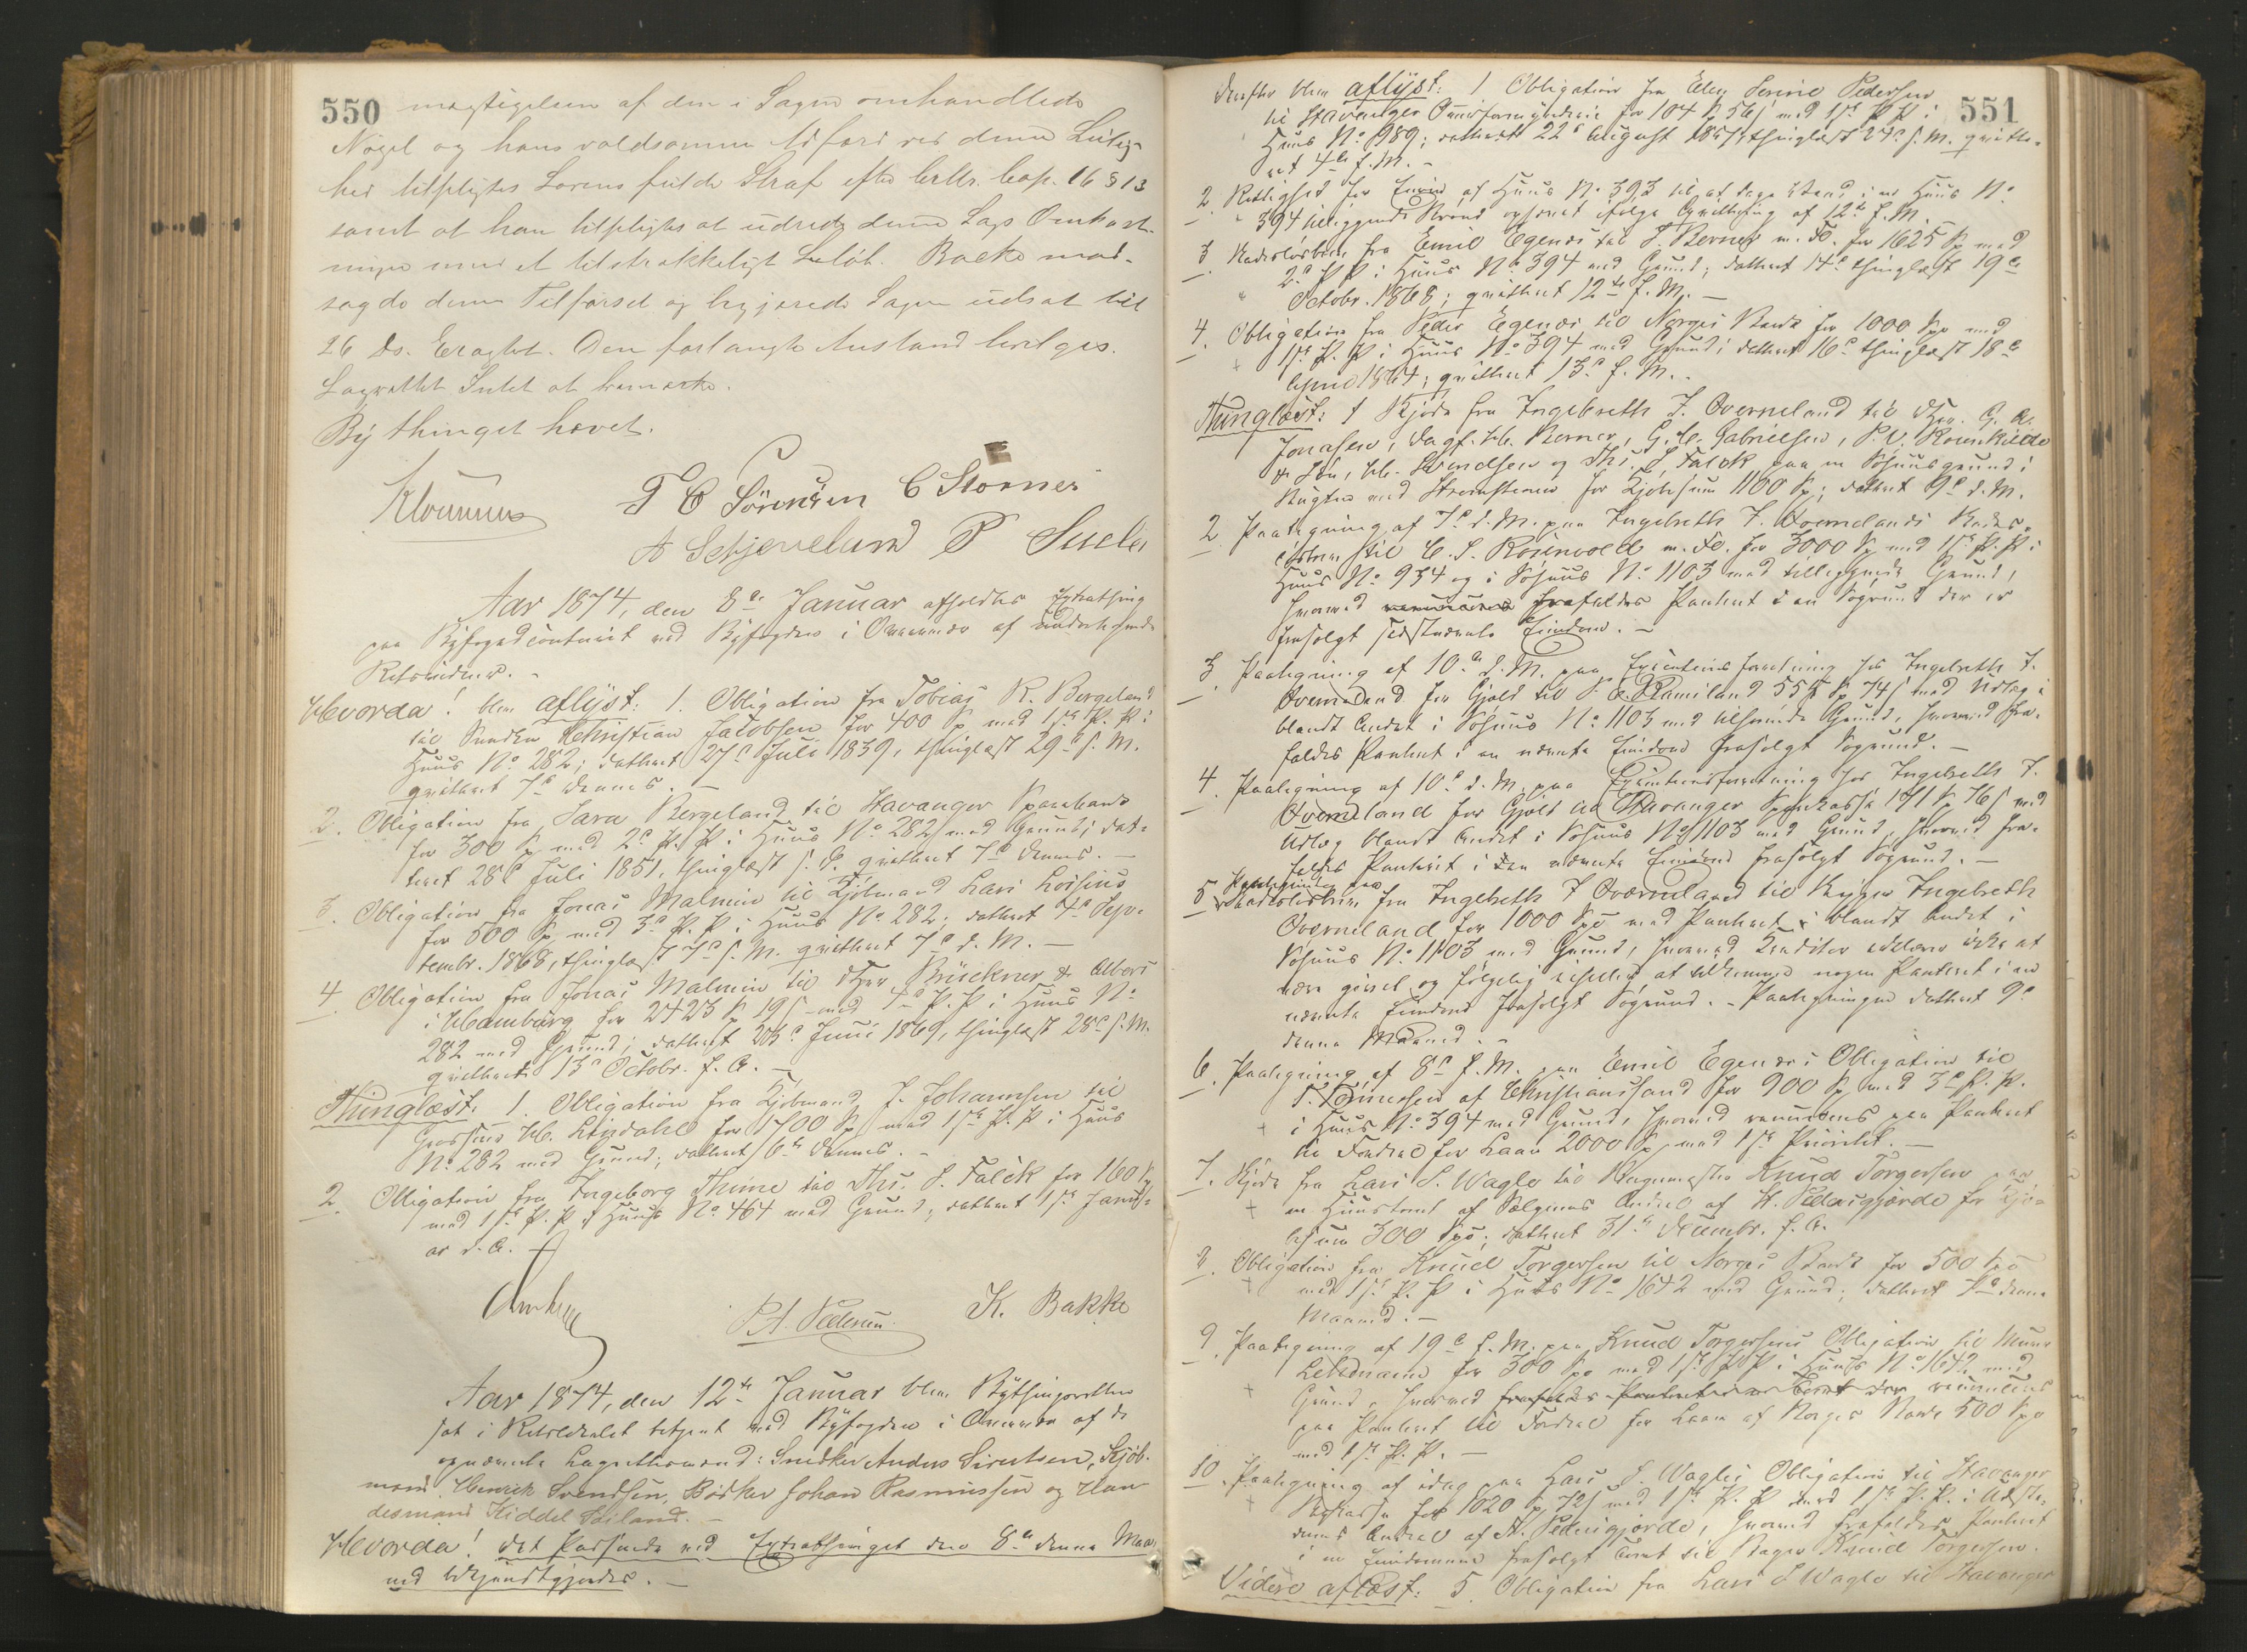 550
mægtigelsen af den i Sagen omhandlede
Nøgel og hans voldsomme Adfærd ved denne Leilig-
hed tilpligtes Lorens fulde Straf efter Crltr. Cap. 16 § 13
samt at han tilpligtes at udrede denne Sags Omkost-
ninger med et tilstrækkeligt Beløb. Backe mod-
sagde denne Tilførsel og begjerede Sagen udsat til
26 ds. Eragtet. Den forlangte Anstand bevilges.
Lagrettet Intet at bemærke.
Bythinget hævet.
T C Sörensen C Stornes
A Schjevelund P
Aar 1874, den 8de Januar afholdtes Extrathing
paa Bÿfogedcontoiret ved Bÿfogden i Overvær af undertegnede
Retsvidner. -
Hvorda! blev aflÿst: 1. Obligation fra Tobias R. Bergeland
til Snedker Christian Jacobsen for 400 Sp med 1ste P. P. i
Huus No 282; dateret 27de Juli 1839, thinglæst 29de s. M.
qvitteret 7de dennes. -
2. Obligation fra Sara Bergeland til Stavanger Sparebank
for 300 Sp med 2de P. P. i Huus No 282 med Grund; dat-
teret 28de Juli 1851, thinglæst s. D. qvitteret 7de dennes. -
3. Obligation fra Jonas Malmin til Kjöbmand Lars Loisius
for 500 Sp med 3de P. P. i Huus No 282; dateret 4de Sep-
tembr. 1868, thinglæst 7de s. M. qvitteret 7de d. M. -
4. Obligation fra Jonas Malmin til DHrr Brückner & Albers
i Hamburg for 2423 Sp 19 s med 4de P. P. i Huus No
282 med Grund; dateret 23de Juni 1869, thinglæst 28de s. M.
qvitteret 13de Octobr. f. A. -
Thinglæst: 1. Obligation fra Kjöbmand J. Johannsen til
Grosserer H. Lindahl for 1700 Sp med 1ste P. P. i Huus
No. 282 med Grund; dateret 6te dennes. -
2. Obligation fra Ingeborg Thime til Ths. S. Falck for 160 Sp
med 1ste P. P. i Huus No. 464 med Grund; dateret 1ste Janu-
ar d. A. -
P. A. Pedersen K. Bakke
Aar 1874, den 12te Januar blev Bÿthingsretten
sat i Retslocalet betjent ved Bÿfogden i Overvær af de
opnævnte Lagrettesmænd: Snedker Anders Sivertsen, Kjöb-
mand Henrich Svendsen, Bödker Johan Rasmussen og Han-
delsmand Kiddel Soiland. -
Hvorda! det Passerede ved Extrathinget den 8de denne Maa-
ned bekjendtgjordes. -
551
Derefter blev aflÿst: 1 Obligation fra Elen Serine Pedersen
til Stavanger Overformynderie for 104 Sp 56 s med 1ste P. P. i
Huus No. 989; dateret 22de August 1857, thinglæst 27de s. M. qvitte-
ret 4de f. M. -
2. Rettighed for Eieren af Huus No. 393 til at tage Vand i en Huus No.
394 tilliggende Brönd ophævet ifölge Qvittering af 12te f. M.
3. Kaderlösbrev fra Emil Egenæs til S. Berner m. Fl. for 1625 Sp med
2de P P i Huus No. 394 med Grund; dateret 14de thinglæst 19de
Octobr. 1868; qvitteret 12te f. M. -
4. Obligation fra Peder Egenæs til Norges Bank for 1000 Spd med
1ste P. P. i Huus No 394 med Grund; dateret 16de thinglæst 18de
April 1864; qvitteret 13de f. M. -
Thinglæst: 1 Skjöde fra Ingebreth J. Overneland til DHrr. G. A.
Jonasen, H. Berner, G. C. Gabrielsen, P. V. Rosenkilde
& Sön, H. Svendsen og Ths. S. Falck paa en Söhuusgrund i
for Kjöbesum 1100 Sp; dateret 9de d. M.
2. Paategning af 7de d. M. paa Ingebreth J. Overnelands
til C. S. Rosenvold m. Fl. for 3000 Sp med 1ste P. P. i
Huus No. 934 og i Söhuus No. 1103 med tilliggende Grund,
hvorved frafaldes Panteret i en Sögrund der er
frasolgt sidstnævnte Eiendom. -
3. Paategning af 10de d. M. paa Executionsforretning hos Ingebreth J.
Overneland for Gjeld til P. A. Ramsland 555 Sp 74 s med Udlæg i
blandt Andet i Söhuus No. 1103 med tilhörende Grund, hvorved fra-
faldes Panteret i en nævnte Eiendom frasolgt Sögrund. -
4. Paategning af 10de d. M. paa Executionsforretning hos Ingebreth J.
Overneland for Gjeld til Stavanger Sparkasse 171 Sp 76 s med
Udlæg blandt Andet i Söhuus No. 1103 med Grund, hvorved fra-
faldes Panteret i den nævnte Eiendom frasolgt Sögrund. -
5. Paategning paa fra Ingebreth J Overneland til Bÿgger Ingebreth
Overneland for 1000 Spd med Panteret i blandt Andet i
Söhuus No. 1103 med Grund, hvorved Creditor erklærer ikke at
nævnte Eiendom frasolgt Sögrund. - Paategningen dateret 9de
denne Maaned. -
6. Paategning af 8de f. M. paa Emil Egenæs's Obligation til
T. Tönnesen af Christianssand for 900 Sp med 3de P. P.
i Huus No. 394 med Grund, hvorved paa Panteret
til Fordeel for Laan 2000 Sp med 1ste Prioritet. -
7. Skjöde fra Lars S. Wagle til Knud Torgersen paa
en Huustomt af Sælgerens Andeel af St. Pedersgjærde for Kjö-
besum 300 Spd; dateret 31te Decembr. f. A.
8. Obligation fra Knud Torgersen til Norges Bank for 500 Spd
med 1ste P. P. i Huus No 1642 med Grund; dateret 7de denne
Maaned. -
9. Paategning af 19de f. M. paa Knud Torgersens Obligation til
for 300 Spd med 1ste P. P. i Huus No. 1642 med
Grund, hvorved
paa Panteret til Fordeel for Laan af Norges Bank 500 Spd
med 1ste P. P. -
10. Paategning af idag paa Lars S. Wagles Obligation til Stavanger
for 1020 Sp 72 s med 1ste P. P.
Andeel af St. Pedersgjorde, hvorved frafaldes Panteret
i en Eiendommen frasolgt Tomt til Bager Knud Torgersen.
Videre aflæst: 5. Obligation fra Lars S Wagle til Stavanger